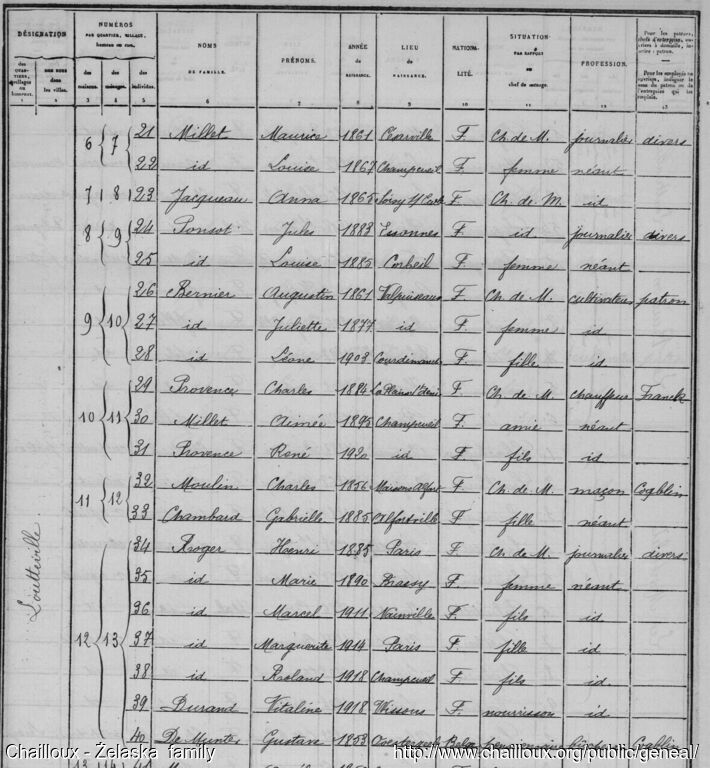 DÉSIGNATION
NUMÉROS
PAR QUARTIER, VILLAGE, hameau ou rue.
NOMS
DE FAMILLE.
PRÉNOMS.
ANNÉE
DE NAISSANCE.
LIEU
DE NAISSANCE.
NATIONALITÉ.
SITUATION
PAR RAPPORT
au chef de ménage.
PROFESSION.
des maisons.
des ménages.
des individus.
des RUES dans les villes.
3 4 5 6 7 8 9 10 11 12 13
6 7 21 Millet Maurice 1861 F. Ch. de M. journalier divers
22 id Louise 1867 Champcueil F. femme néant
7 8 23 Jacqueau Anna F. Ch. de M. id
8 9 24 Ponsot Jules 1883 Essonnes F. id journalier divers
25 id Louise 1885 Corbeil F. femme néant
9 10 26 Bernier Augustin 1861 Valpuiseaux F. Ch. de M. cultivateur patron
27 id Juliette 1877 id F. femme id
28 id Léone 1903 Courdimanche F. fille id
10 11 29 Provence Charles 1884 F. Ch. de M. chauffeur Franck
30 Millet Aimée 1895 Champcueil F. amie néant
31 Provence René 1920 id F. fils id
11 12 32 Moulin Charles 1856 Maisons Alfort F. Ch. de M. maçon
33 Chambard Gabrielle 1885 Alfortville F fille néant
12 13 34 Roger Henri 1885 Paris F. Ch. de M. journalier divers
35 id Marie 1890 Brassy F. femme néant
36 id Marcel 1911 Nainville F. fils id
37 id Marguerite 1914 Paris F. fille id
38 id Roland 1918 Champcueil F. fils id
39 Durand Vitaline 1918 Wissous F. nourrisson id
40 De Munter Gustave 1853 Belge
Loutteville
Chailloux - Żelaska family
http://www.chailloux.org/public/geneal/